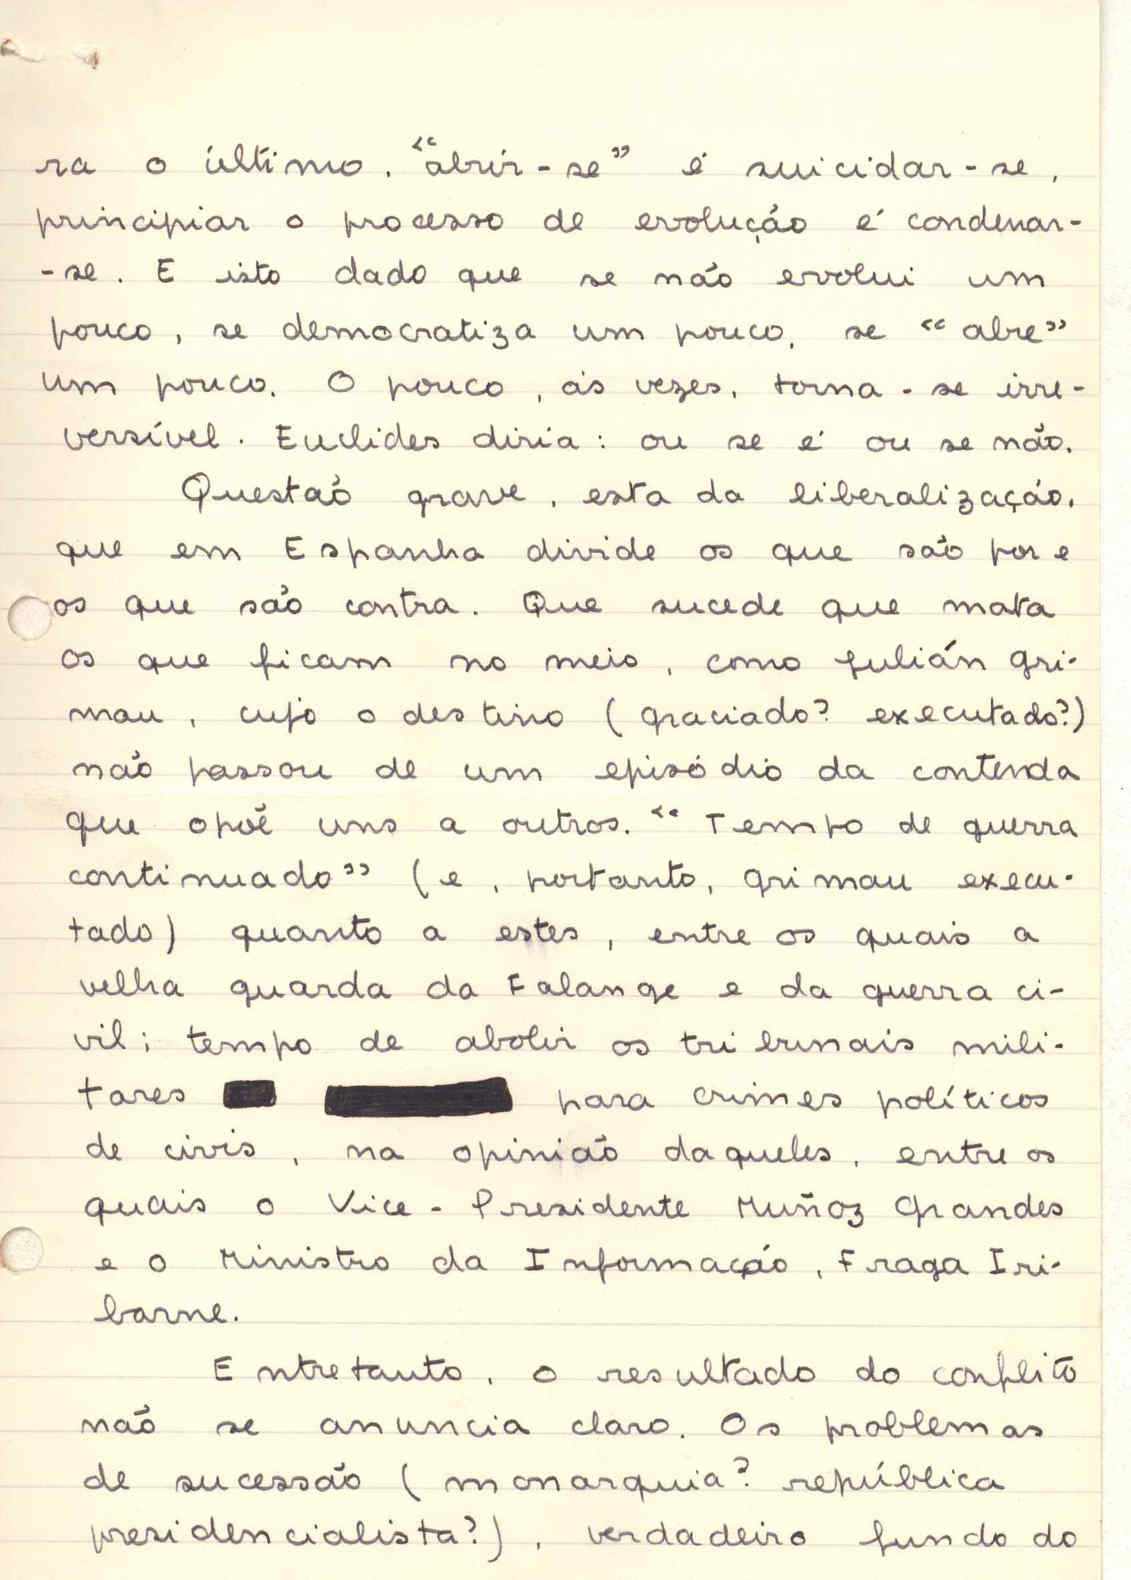 ra o último. “abrir-se” é suicidar-se,
principiar o processo de evolução é condenar-
-se. E isto dado que se não evolui um
pouco, se democratiza um pouco, se “abre”
um pouco. O pouco, às vezes, torna-se irre-
versível. Euclides diria: ou se é ou se não.
Questão grave, esta da liberalização,
que em Espanha divide os que são por e
os que são contra. Que sucede que mata
os que ficam no meio, como Julián Gri-
mau, cujo o destino (graciado? executado?)
não passou de um episódio da contenda
que opõe uns a outros. “Tempo de guerra
continuado” (e, portanto, Grimau execu-
tado) quanto a estes, entre os quais a
velha guarda da Falange e da guerra ci-
vil; tempo de abolir os tribunais mili-
tares para crimes políticos
de civis, na opinião daqueles, entre os
quais o Vice-Presidente Muñoz Grandes
e o Ministro da Informação, Fraga Iri-
barne.
Entretanto, o resultado do conflito
não se anuncia claro. Os problemas
de sucessão (monarquia? república
presidencialista?), verdadeiro fundo do